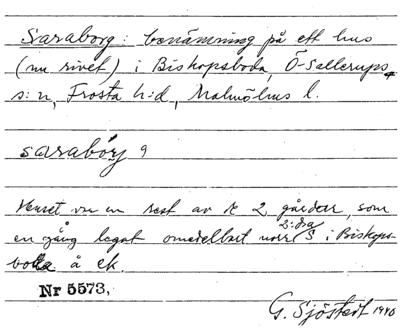 Saraborg: benämning på ett hus
(nu rivet) i Biskopsboda, Ö-Sallerups
s:n, Frosta h:d, Malmöhus l.
sarabårj
Huset var en rest av de 2 gårdar, som
2:dra
en gång legat omedelbart norr i Biskops-
boda å ek.
Nr 5573,
G. Sjöstedt 1940